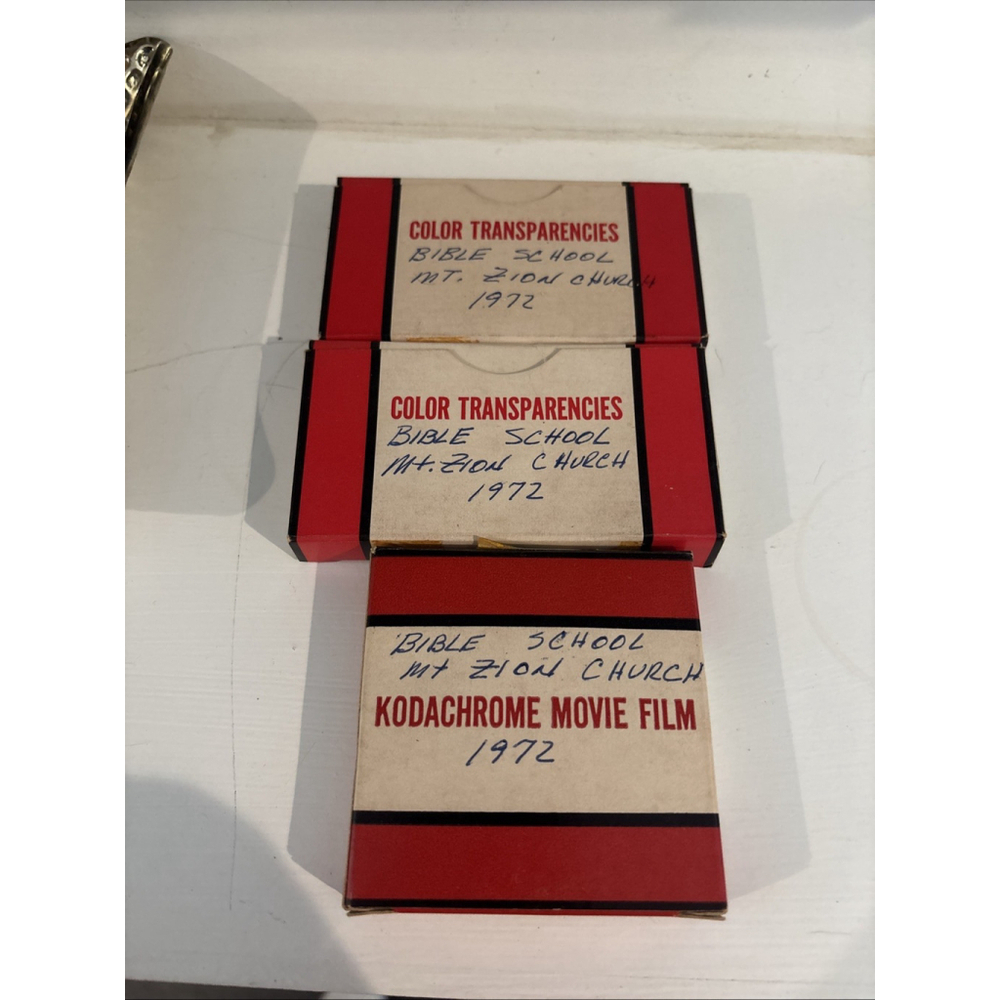 COLOR TRANSPARENCIES
BIBLE SCHOOL
MT. ZION CHURCH
1972
COLOR TRANSPARENCIES
BIBLE SCHOOL
Mt. ZION CHURCH
1972
BIBLE SCHOOL
Mt ZION CHURCH
KODACHROME MOVIE FILM
1972